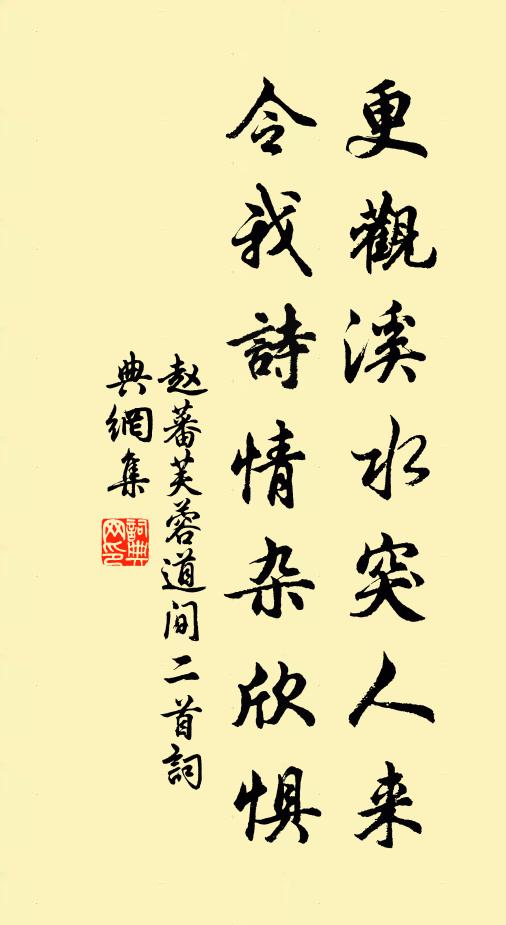 更觀溪水突人来
令我詩情杂欣惧
赵蕃芙蓉道间二首詞
典網集
詞典网印